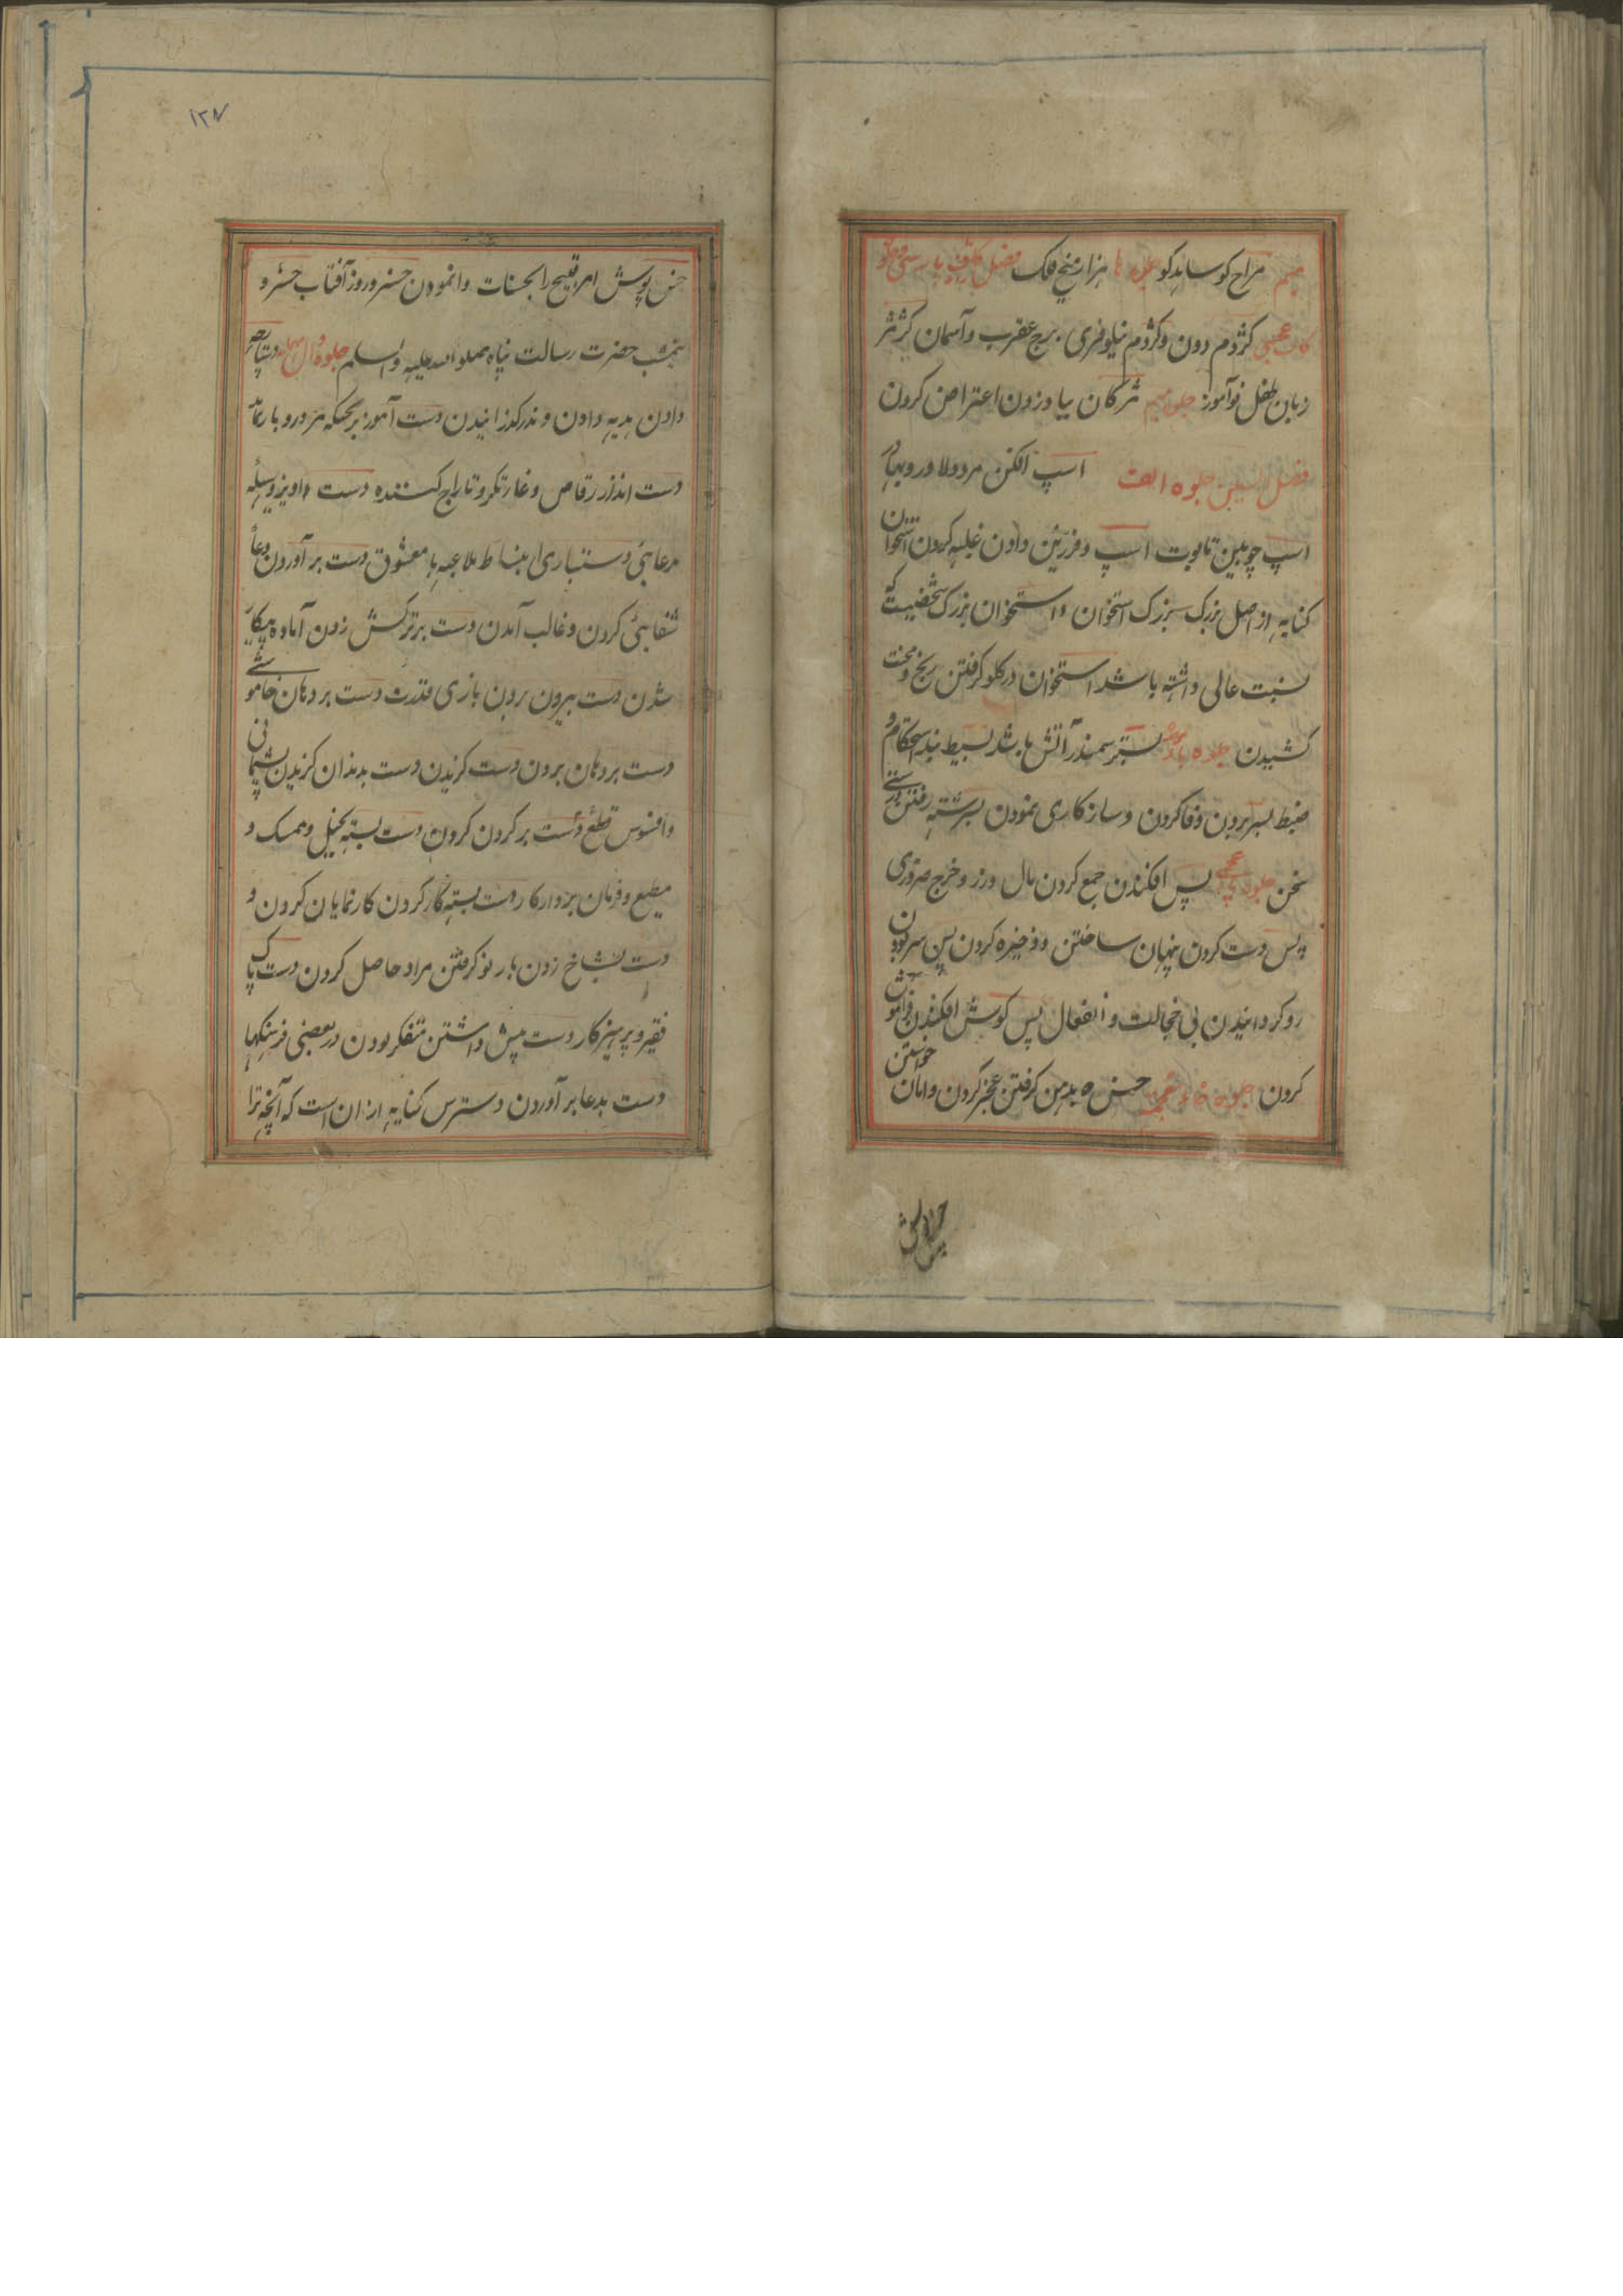 میم مزاح کو ساید کو جلوه ها هزار میخ فلک فصل
کاف عجمی کژدم دون و کژدم نیلوفری برج عقرب و آسمان کژمژ
زبان طفل نوآموز جلوه میم مژکان بیا و زدن اعتراض کردن
فصل السین جلوه الف اسپ افکن مرد دلاور و بهادر
اسپ چوبین تابوت اسپ و فرزین دادن غلبه کردن استخوان
کنایه از اصل بزرک بزرک استخوان و استخوان بزرک شخصیست که
نسبت عالی داشته باشد استخوان در کلو کرفتن رنج و محنت
کشیدن جلوه باء بستر سمندر آتش باشد بسیط بند استحکام و
ضبط بسر بردن وفا کردن و سازکاری نمودن بسر رشته رفتن درستی
سخن جلوه پس افکندن جمع کردن مال و زر و خرج ضروری
پس دست کردن پنهان ساختن و ذخیره کردن پس سر بودن
رو کردانیدن بی خجالت و انفعال پس کوش افکندن فراموش
کردن جلوه خاء معجمه خس به دهن کرفتن عجز کردن و امان خواستن
خس پوش
خس پوش امر قبیح را بحسنات وانمودن خسرو روز آفتاب خسرو
بنفشب حضرت رسالت پناه صلوا الله علیه و سلم جلوه دال مهمله دستار
دادن هدیه دادن و نذر کذرانیدن دست آموز بر حسکه
دست انداز رقاص و غارتکر و تاراج کننده دست آویز وسیله
مرغابئی دستبازی انبساط ملاعبه با معشوق دست برآوردن دعا
شفابئی کردن و غالب آمدن دست بر ترکش زدن آماده پیکار
شدن دست بیرون بردن بازی قدرت دست بر دهان خاموشی
دست بر دهان بردن دست کزیدن دست بدندان کزیدن پشیمانی
و افسوس قطع دست بر کردن کردن دست بسته بخیل و ممسک و
مطیع و فرمان بردار کار دست بسته کار کردن کار نمایان کردن و
دست بشاخ زدن بار نو کرفتن مراد حاصل کردن دست پاک
فقیر و پرهیزکار دست پیش داشتن متفکر بودن در بعضی فرهنکها
دست بدعا برآوردن دسترس کنایه از ان است که آنچه ترا
۱۲۷